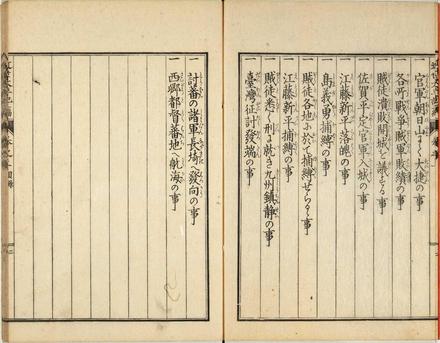 一 官軍朝日山まて大捷の事
一 各所戦争賊軍敗績の事
一 賊徒潰敗開城を議する事
一 佐賀平定官軍入城の事
一 江藤新平落魄の事
一 島義勇捕縛の事
一 江藤新平捕縛の事
一 賊徒各地に於て捕縛せらるゝ事
一 賊徒悉く刑に就き九州鎮静の事
一 臺灣征討發端の事
一 討蕃の諸軍長埼へ發向の事
一 西郷都督蕃地へ航海の事